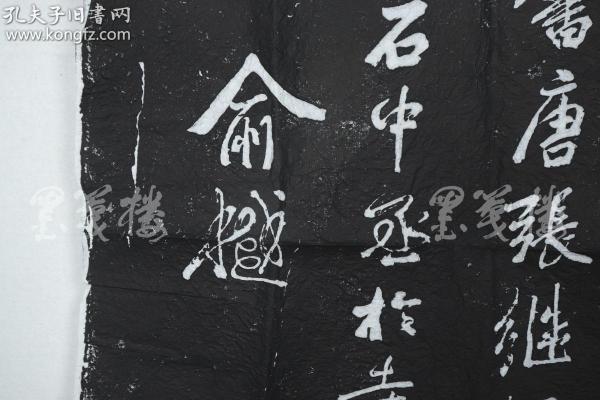 孔夫子旧书网
www.kongfz.com
書唐張繼
石中丞於寺
俞樾